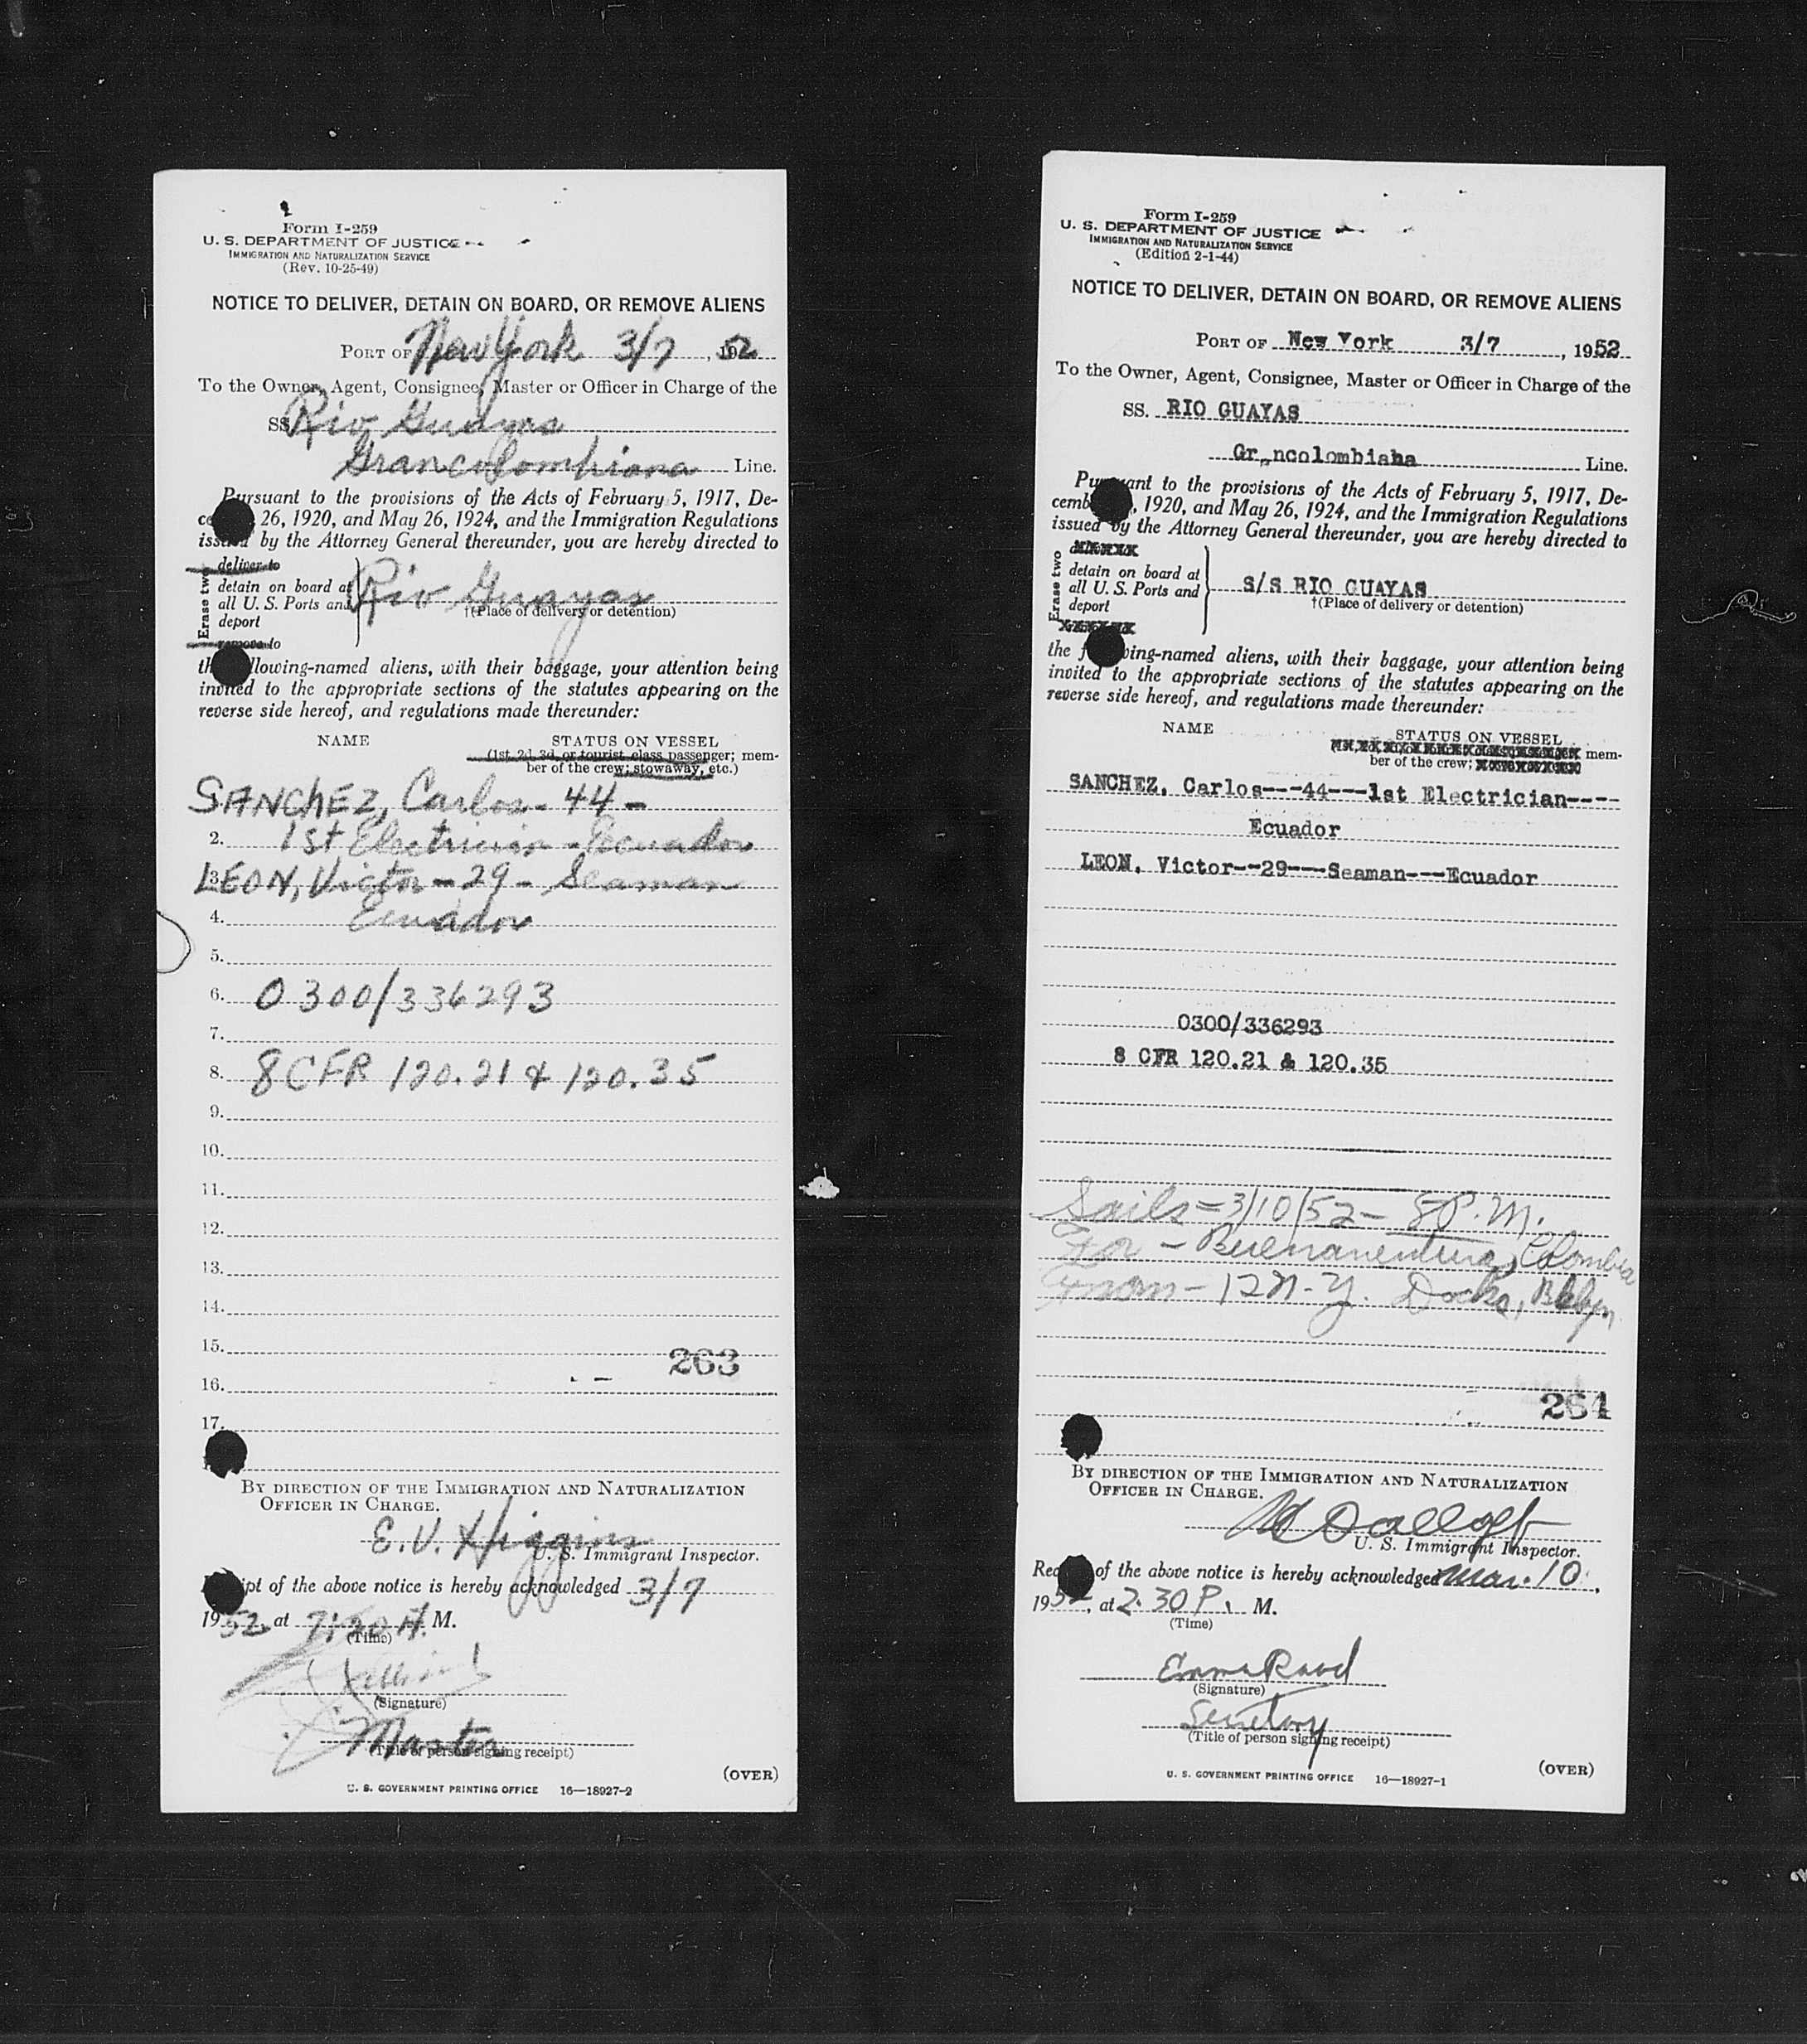 Form I-259
U. S. DEPARTMENT OF JUSTICE
IMMIGRATION AND NATURALIZATION SERVICE
(Rev. 10-25-49)
NOTICE TO DELIVER, DETAIN ON BOARD, OR REMOVE ALIENS
PORT OF New York 3/7, 1952
To the Owner, Agent, Consignee, Master or Officer in Charge of the
SS Rio Guayas
Grancolombiana Line.
Pursuant to the provisions of the Acts of February 5, 1917, De-
26, 1920, and May 26, 1924, and the Immigration Regulations
issued by the Attorney General thereunder, you are hereby directed to
Erase two
deliver to
detain on board at
all U. S. Ports and
deport
remove to
Rio Guayas
†(Place of delivery or detention)
the following-named aliens, with their baggage, your attention being
invited to the appropriate sections of the statutes appearing on the
reverse side hereof, and regulations made thereunder:
NAME STATUS ON VESSEL
(1st, 2d, 3d, or tourist class passenger; mem-
ber of the crew; stowaway, etc.)
SANCHEZ, Carlos - 44 -
2. 1st Electrician - Ecuador
3. LEON, Victor - 29 - Seaman
4. Ecuador
5.
6. 0300/336293
7.
8. 8 CFR 120.21 & 120.35
9.
10.
11.
12.
13.
14.
15.
263
16.
17.
BY DIRECTION OF THE IMMIGRATION AND NATURALIZATION
OFFICER IN CHARGE.
E. V. Higgins
U. S. Immigrant Inspector.
Receipt of the above notice is hereby acknowledged 3/7
1952, at 7:20 A. M.
(Time)
(Signature)
Master
(Title of person signing receipt)
(OVER)
U. S. GOVERNMENT PRINTING OFFICE 16—18927-2
Form I-259
U. S. DEPARTMENT OF JUSTICE
IMMIGRATION AND NATURALIZATION SERVICE
(Edition 2-1-44)
NOTICE TO DELIVER, DETAIN ON BOARD, OR REMOVE ALIENS
PORT OF New York 3/7, 1952
To the Owner, Agent, Consignee, Master or Officer in Charge of the
SS. RIO GUAYAS
Gr ncolombiaha Line.
Pursuant to the provisions of the Acts of February 5, 1917, De-
cemb , 1920, and May 26, 1924, and the Immigration Regulations
issued by the Attorney General thereunder, you are hereby directed to
Erase two
detain on board at
all U. S. Ports and
deport
S/S RIO GUAYAS
†(Place of delivery or detention)
the following-named aliens, with their baggage, your attention being
invited to the appropriate sections of the statutes appearing on the
reverse side hereof, and regulations made thereunder:
NAME STATUS ON VESSEL
mem-
ber of the crew;
SANCHEZ, Carlos---44---1st Electrician----
Ecuador
LEON, Victor--29---Seaman---Ecuador
0300/336293
8 CFR 120.21 & 120.35
Sails = 3/10/52 - 8 P.M.
For - Buenaventura, Colombia
From - 12 N.Y. Docks, Bklyn
264
BY DIRECTION OF THE IMMIGRATION AND NATURALIZATION
OFFICER IN CHARGE.
U. S. Immigrant Inspector.
Receipt of the above notice is hereby acknowledged Mar. 10,
1952, at 2.30 P. M.
(Time)
Emma
(Signature)
Secretary
(Title of person signing receipt)
(OVER)
U. S. GOVERNMENT PRINTING OFFICE 16—18927-1